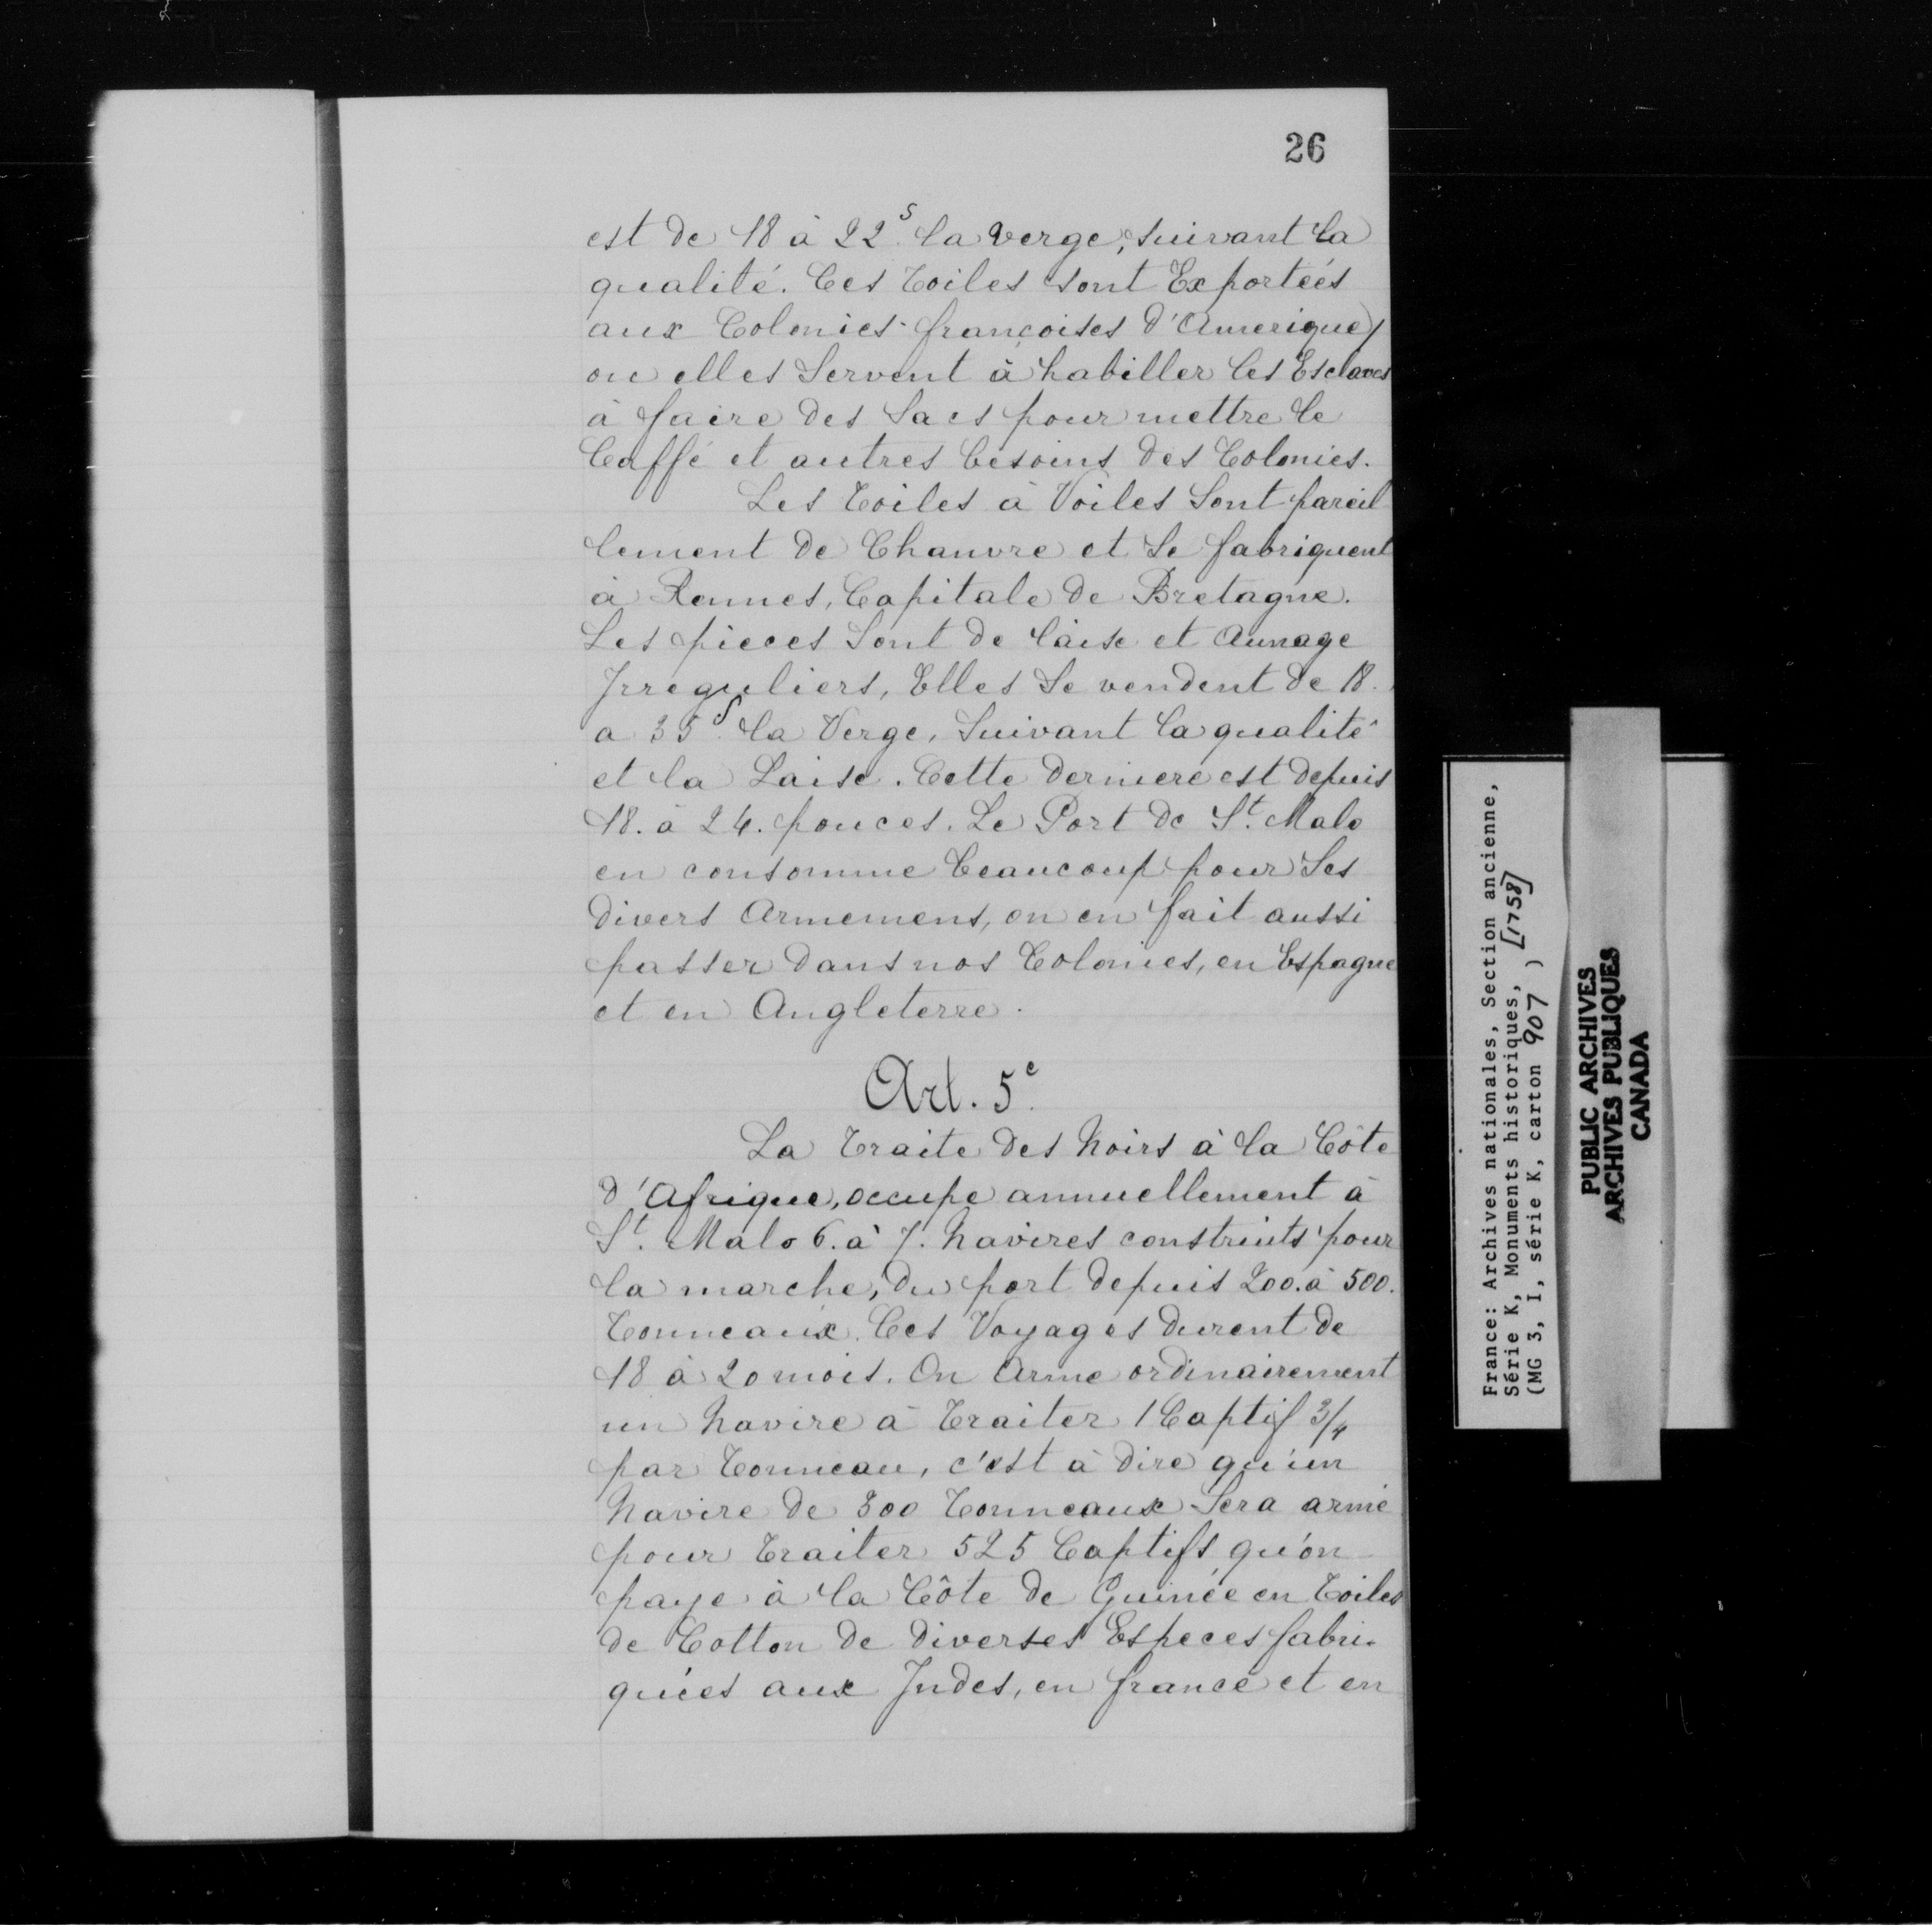 26
est de 18 à 22.s la verge, suivant la
qualité. Ces Toiles sont Exportées
aux Colonies françoises d'Amerique,
ou elles Servent à habiller les Esclaves
à faire des Sacs pour mettre le
Caffé et autres besoins des Colonies.
Les Toiles à Voiles Sont pareil
lement de Chanvre et Se fabriquent
à Rennes, Capitale de Bretagne.
Les pieces Sont de laise et Aunage
Irreguliers, Elles Se vendent de 18.
a 35.s la Verge, Suivant la qualité
et la Laise. Cette derniere est depuis
18. à 24. pouces. Le Port de St. Malo
en consomme beaucoup pour Ses
divers Armemens, on en fait aussi
passer dans nos Colonies, en Espagne
et en Angleterre.
Art. 5e.
La Traite des Noirs à la Côte
d'Afrique, occupe annuellement à
St. Malo 6. à 7. Navires construits pour
la marche, du port depuis 200. à 500.
Tonneaux. Ces Voyages durent de
18 à 20 mois. On Arme ordinairement
un Navire à Traiter 1 Captif 3/4
par Tonneau, c'est à dire qu'un
Navire de 300 Tonneaux Sera armé
pour Traiter 525 Captifs qu'on
paye à la Côte de Guinée en Toiles
de Cotton de diverses Especes fabri-
quées aux Indes, en france et en
France: Archives nationales, Section ancienne,
Série K, Monuments historiques, [1758]
(MG 3, I, série K, carton 907 )
PUBLIC ARCHIVES
ARCHIVES PUBLIQUES
CANADA